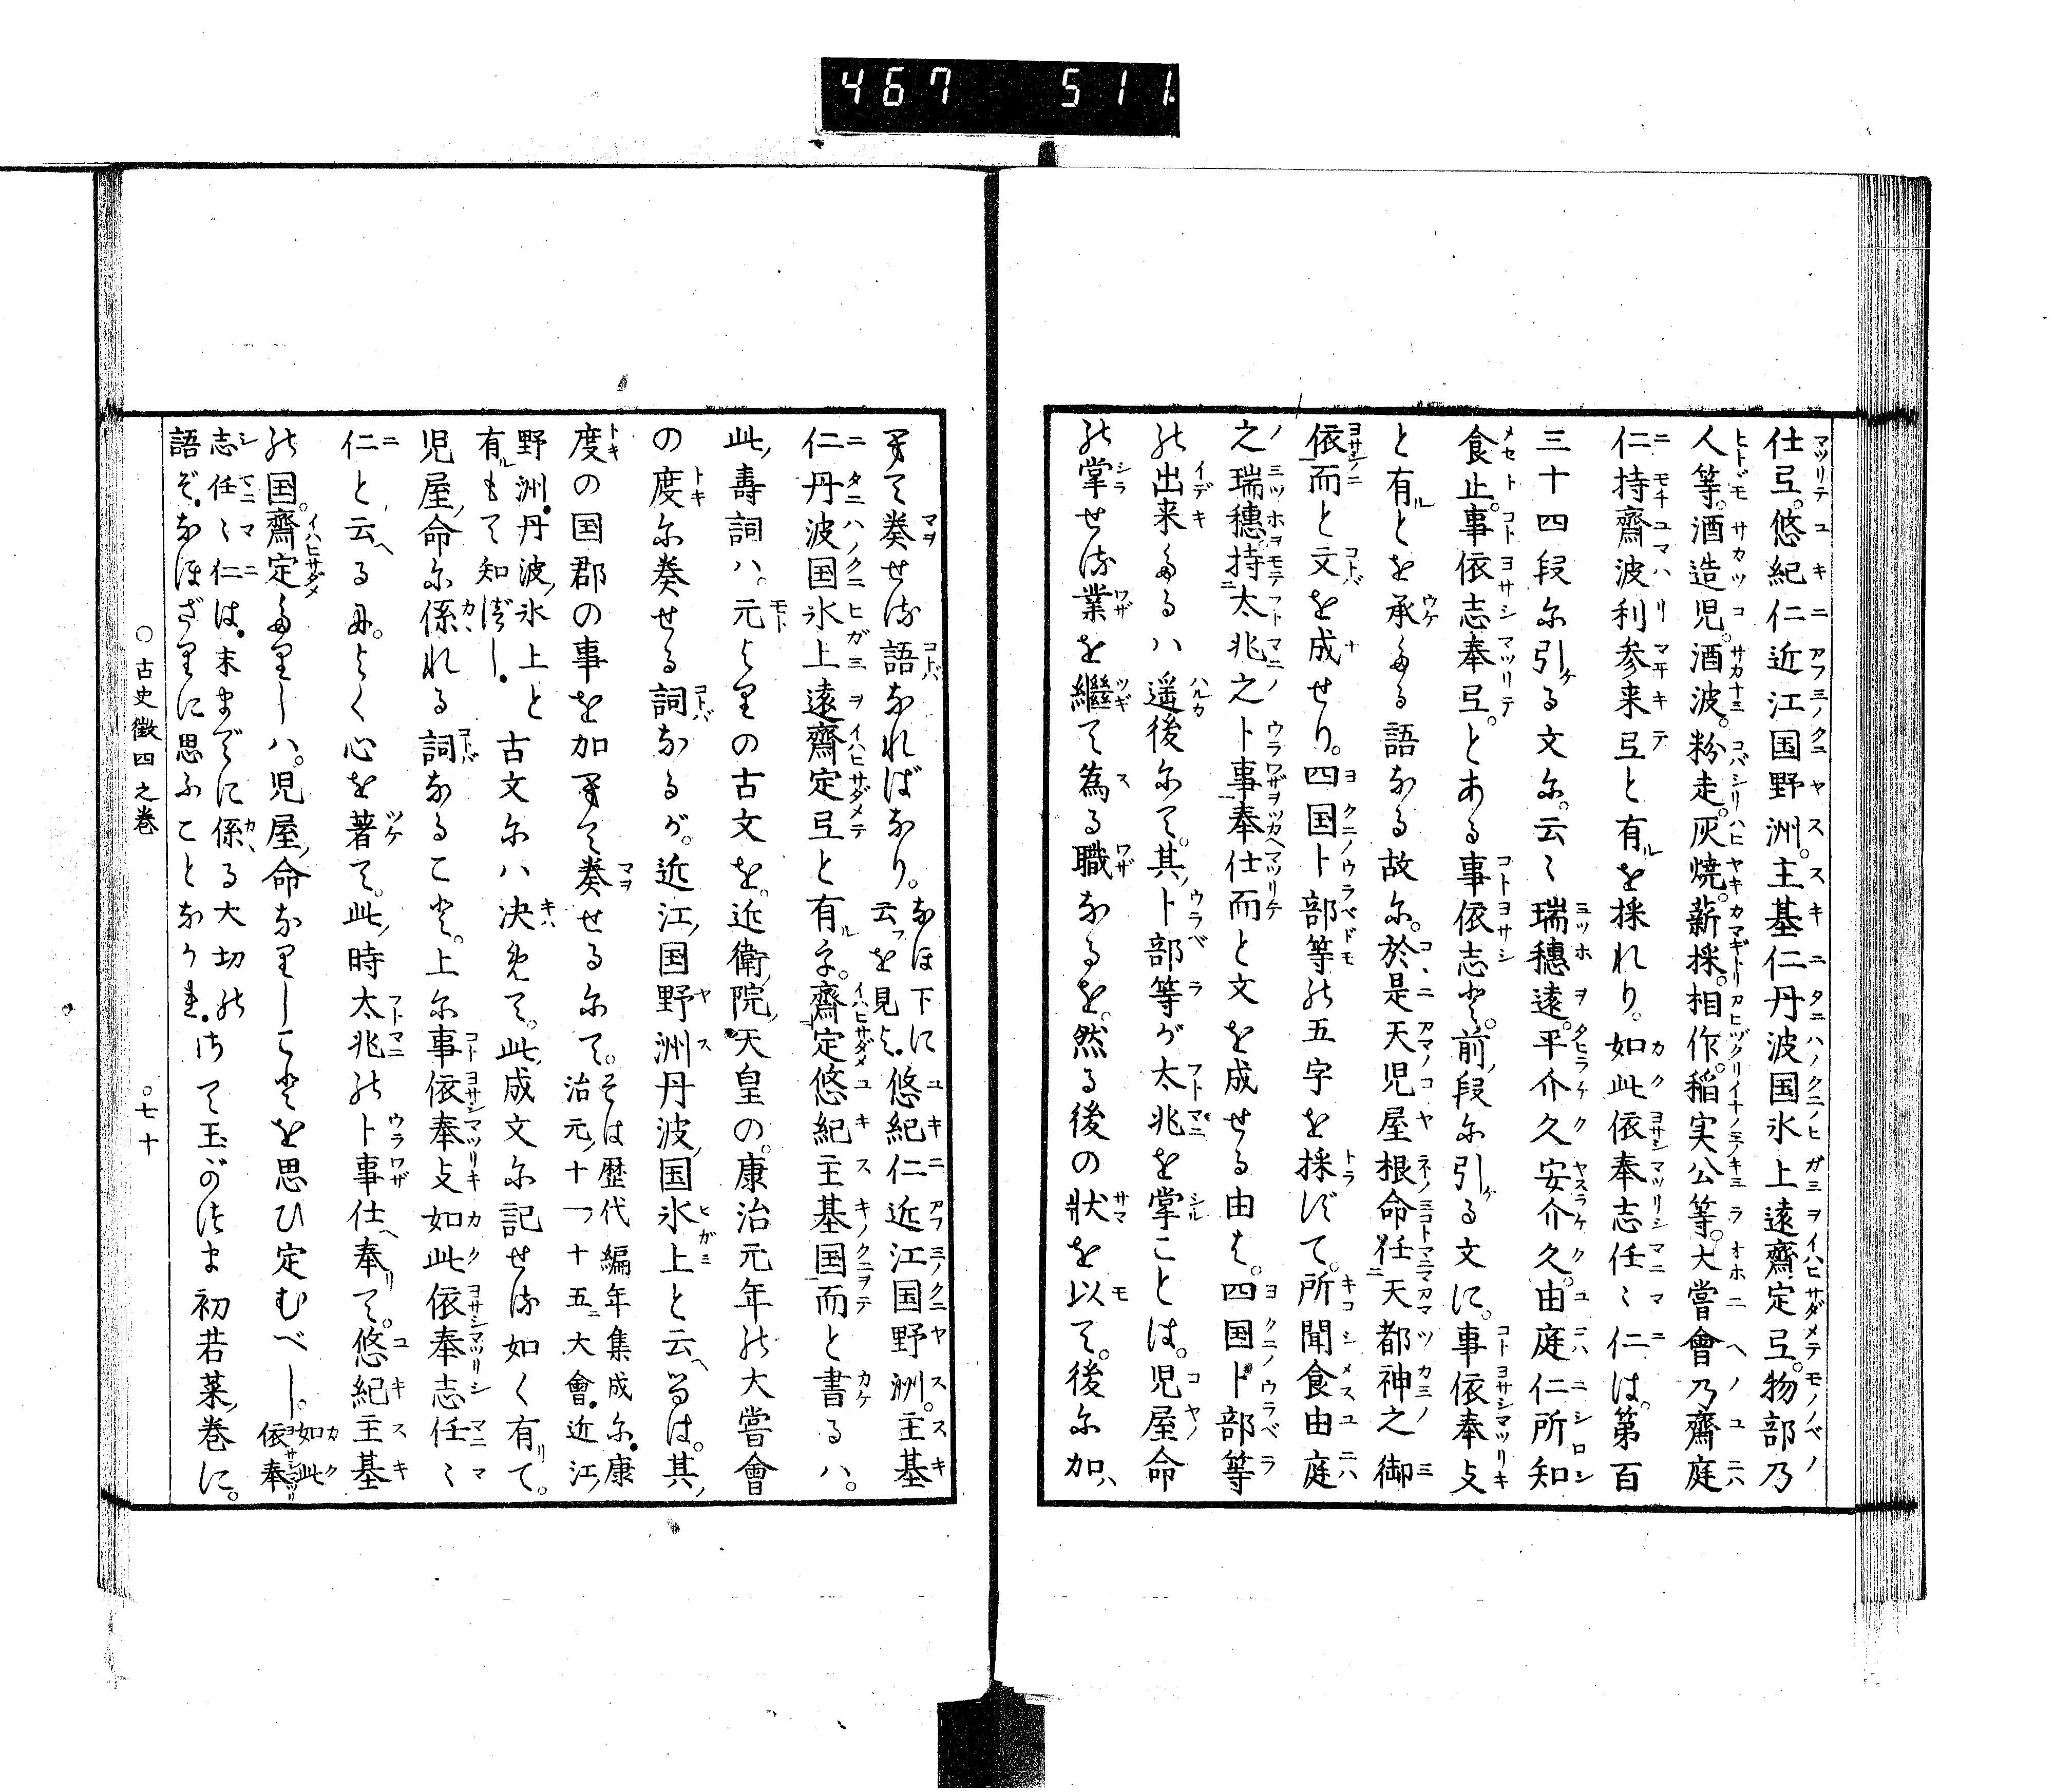 467 511
仕弖。悠紀仁近江国野洲。主基仁丹波国氷上遠齋定弖。物部乃
人等。酒造児。酒波。粉走。灰焼。薪採。相作。稲実公等。大嘗會乃齋庭
仁持齋波利参来弖と有を採れり。如此依奉志任〻仁は。第百
三十四段尓引る文尓。云〻瑞穗遠。平介久安介久。由庭仁所知
食止。事依志奉弖。とある事依志を。前段尓引る文に。事依奉攴
と有とを承たる語なる故尓。於是天児屋根命任天都神之御
依而と文を成せり。四国卜部等の五字を採べて。所聞食由庭
之瑞穗。持太兆之卜事奉仕而と文を成せる由は。四国卜部等
の出来たるハ遥後尓て。其卜部等が太兆を掌ことは。児屋命
の掌せる業を継て為る職なるを。然る後の状を以て。後尓加
へて奏せる語なればなり。なほ下に云を見よ。悠紀仁近江国野洲。主基
仁丹波国氷上遠齋定弖と有を。齋定悠紀主基国而と書るハ。
此壽詞ハ。元よりの古文を。近衛院天皇の。康治元年の大嘗會
の度尓奏せる詞なるが。近江国野洲丹波国氷上と云るは。其
度の国郡の事を加へて奏せる尓て。そは歴代編年集成尓。康治元十一十五大會。近江
野洲。丹波氷上と有もて知べし。古文尓ハ決めて。此成文尓記せる如く有て。
児屋命尓係れる詞なること。上尓事依奉攴如此依奉志任〻
仁と云るに。よく心を著て。此時太兆の卜事仕奉て。悠紀主基
の国。齋定たりしハ。児屋命なりしことを思ひ定むべし。如此依奉
志任〻仁は。末までに係る大切の語ぞ。なほざりに思ふことなかれ。さて玉がつま初若菜巻に。
○古史徴四之巻 ○七十